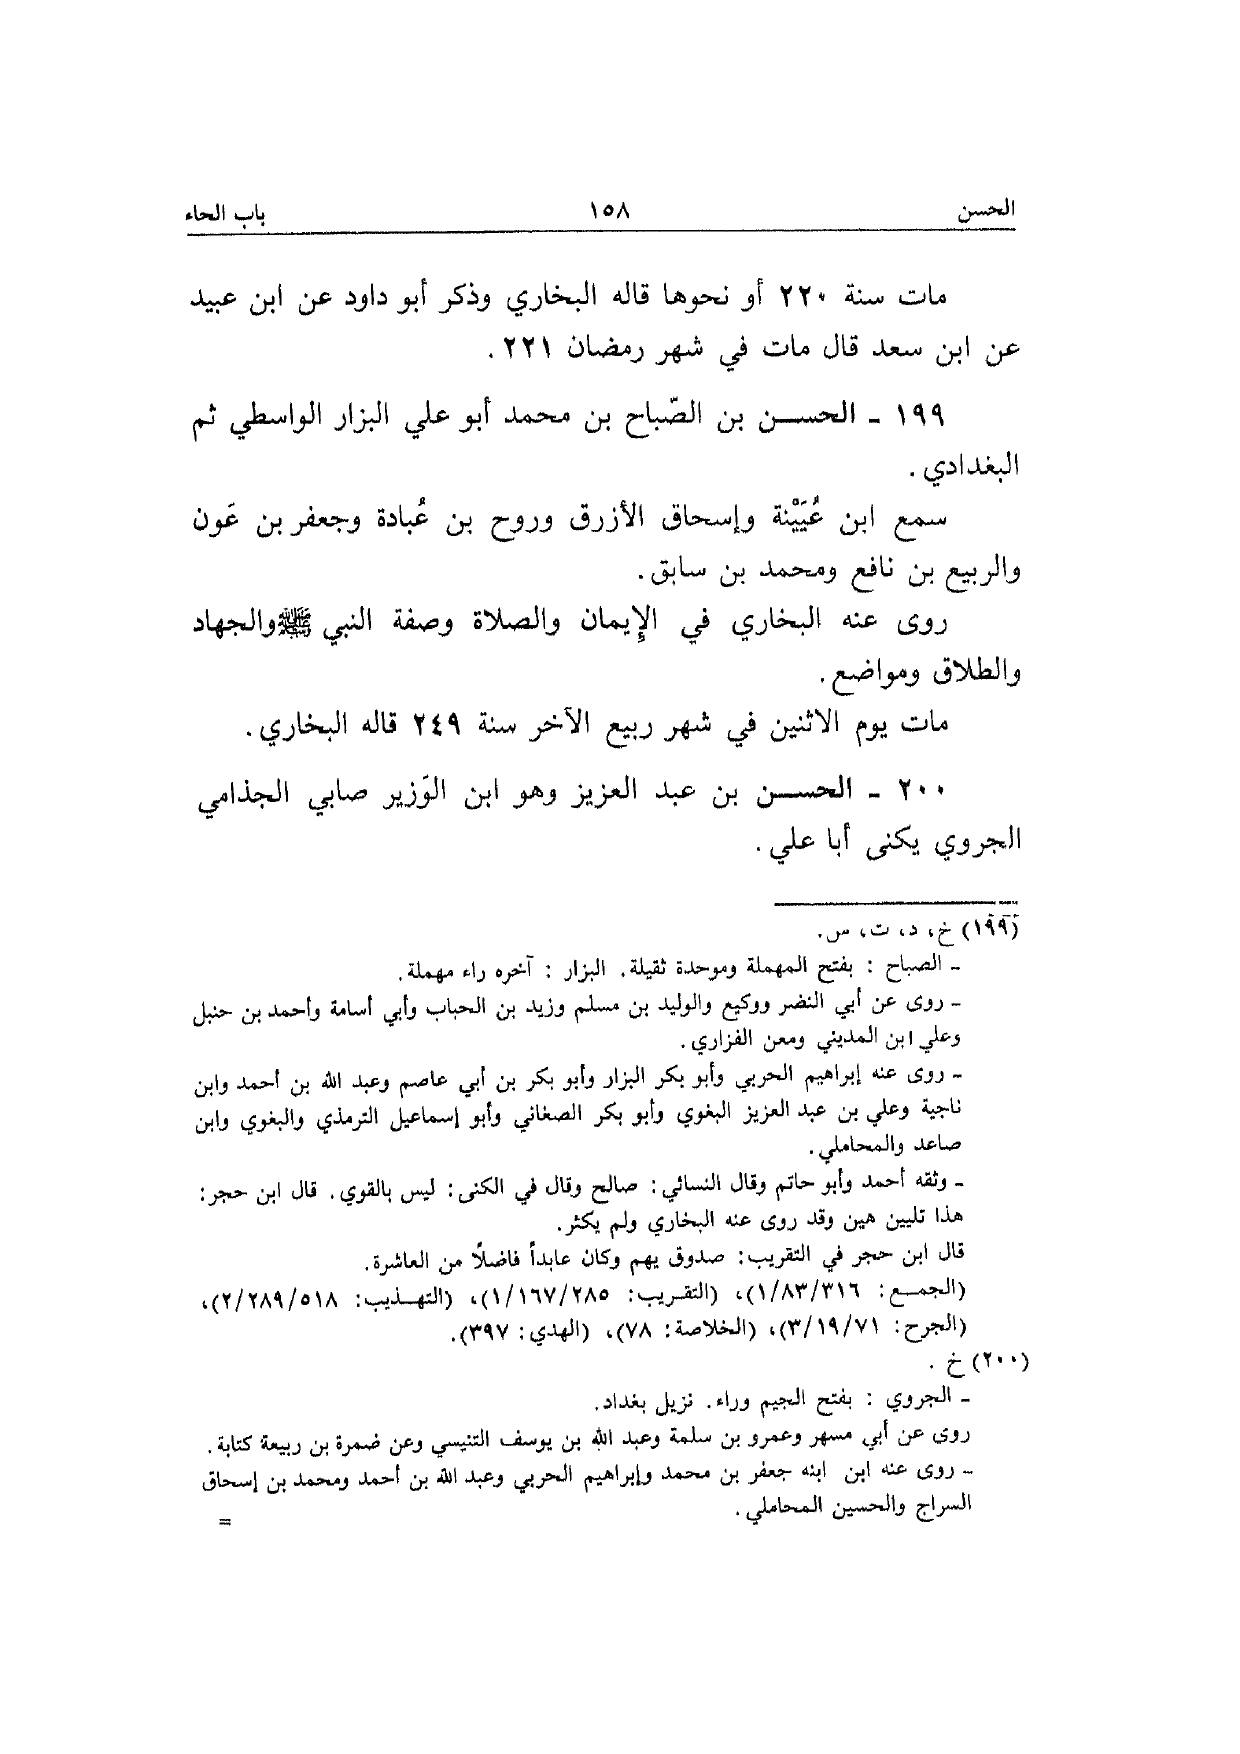 الحسن ١٥٨ باب الحاء
مات سنة ٢٢٠ أو نحوها قاله البخاري وذكر أبو داود عن ابن عبيد
عن ابن سعد قال مات في شهر رمضان ٢٢١ .
١٩٩ ـ الحســن بن الصّباح بن محمد أبو علي البزار الواسطي ثم
البغدادي .
سمع ابن عُيَيْنة وإسحاق الأزرق وروح بن عُبادة وجعفر بن عَون
والربيع بن نافع ومحمد بن سابق .
روى عنه البخاري في الإيمان والصلاة وصفة النبي ﷺ والجهاد
والطلاق ومواضع .
مات يوم الاثنين في شهر ربيع الآخر سنة ٢٤٩ قاله البخاري .
٢٠٠ ـ الحســن بن عبد العزيز وهو ابن الوَزير صابي الجذامي
الجروي يكنى أبا علي .
(١٩٩) خ، د، ت، س.
ـ الصباح : بفتح المهملة وموحدة ثقيلة . البزار : آخره راء مهملة .
ـ روى عن أبي النضر ووكيع والوليد بن مسلم وزيد بن الحباب وأبي أسامة وأحمد بن حنبل
وعلي ابن المديني ومعن الفزاري .
ـ روى عنه إبراهيم الحربي وأبو بكر البزار وأبو بكر بن أبي عاصم وعبد الله بن أحمد وابن
ناجية وعلي بن عبد العزيز البغوي وأبو بكر الصغاني وأبو إسماعيل الترمذي والبغوي وابن
صاعد والمحاملي .
ـ وثقه أحمد وأبو حاتم وقال النسائي : صالح وقال في الكنى : ليس بالقوي . قال ابن حجر :
هذا تليين هين وقد روى عنه البخاري ولم يكثر .
قال ابن حجر في التقريب : صدوق يهم وكان عابداً فاضلاً من العاشرة .
(الجمــع : ١/٨٣/٣١٦)، (التقـريب : ١/١٦٧/٢٨٥)، (التهــذيب : ٢/٢٨٩/٥١٨)،
(الجرح : ٣/١٩/٧١)، (الخلاصة : ٧٨)، (الهدي : ٣٩٧).
(٢٠٠) خ .
ـ الجروي : بفتح الجيم وراء . نزيل بغداد .
روى عن أبي مسهر وعمرو بن سلمة وعبد الله بن يوسف التنيسي وعن ضمرة بن ربيعة كتابة .
ـ روى عنه ابن ابنه جعفر بن محمد وإبراهيم الحربي وعبد الله بن أحمد ومحمد بن إسحاق
السراج والحسين المحاملي .
=